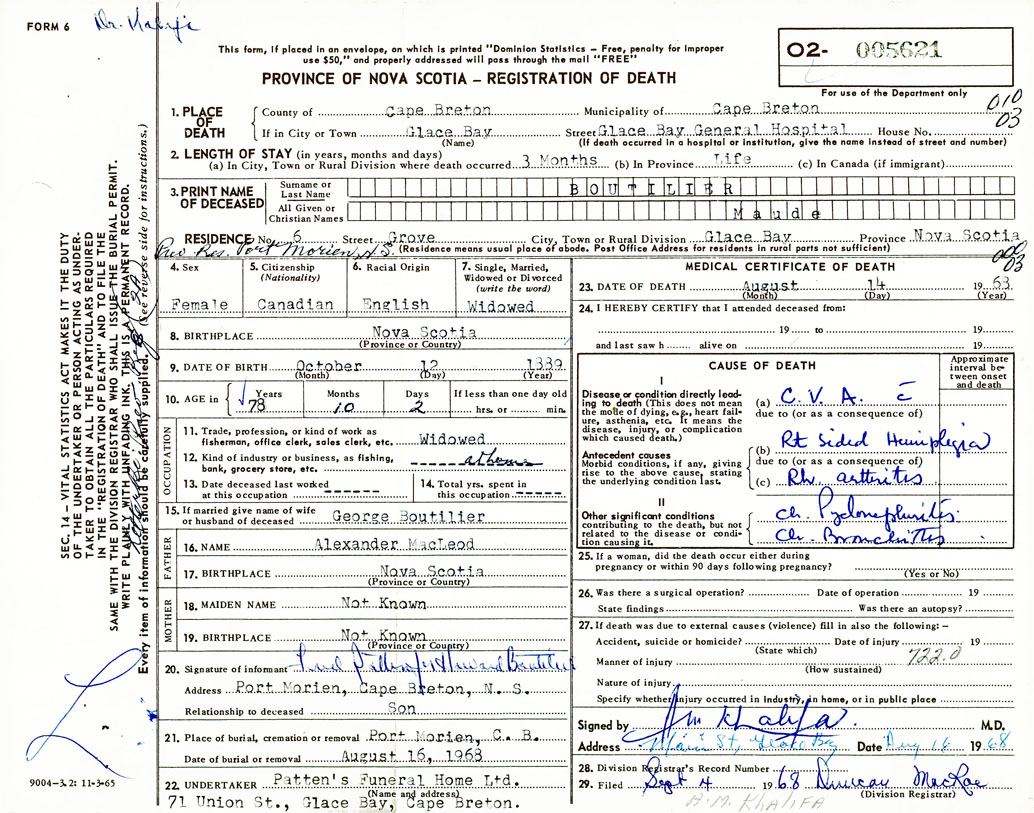 FORM 6 Dr. Khalifa
This form, if placed in an envelope, on which is printed "Dominion Statistics – Free, penalty for improper
use $50," and properly addressed will pass through the mail "FREE"
O2- 005621
PROVINCE OF NOVA SCOTIA – REGISTRATION OF DEATH
For use of the Department only
010
03
1. PLACE OF DEATH
County of Cape Breton Municipality of Cape Breton
If in City or Town Glace Bay Street Glace Bay General Hospital House No.
(Name) (If death occurred in a hospital or institution, give the name instead of street and number)
2. LENGTH OF STAY (in years, months and days)
(a) In City, Town or Rural Division where death occurred 3 Months (b) In Province Life (c) In Canada (if immigrant)
3. PRINT NAME OF DECEASED
Surname or Last Name BOUTILIER
All Given or Christian Names Maude
RESIDENCE No. 6 Street Grove City, Town or Rural Division Glace Bay Province Nova Scotia
Prev Res. Port Morien, N.S. (Residence means usual place of abode. Post Office Address for residents in rural parts not sufficient)
03
4. Sex
Female
5. Citizenship
(Nationality)
Canadian
6. Racial Origin
English
7. Single, Married,
Widowed or Divorced
(write the word)
Widowed
8. BIRTHPLACE Nova Scotia
(Province or Country)
9. DATE OF BIRTH October 12 1889
(Month) (Day) (Year)
10. AGE in
Years Months Days If less than one day old
78 10 2 hrs. or min.
OCCUPATION
11. Trade, profession, or kind of work as
fisherman, office clerk, sales clerk, etc. Widowed
12. Kind of industry or business, as fishing,
bank, grocery store, etc. at home
13. Date deceased last worked
at this occupation
14. Total yrs. spent in
this occupation
15. If married give name of wife
or husband of deceased George Boutilier
FATHER
16. NAME Alexander MacLeod
17. BIRTHPLACE Nova Scotia
(Province or Country)
MOTHER
18. MAIDEN NAME Not Known
19. BIRTHPLACE Not Known
(Province or Country)
20. Signature of informant Howard Boutilier
Address Port Morien, Cape Breton, N. S.
Relationship to deceased Son
21. Place of burial, cremation or removal Port Morien, C. B.
Date of burial or removal August 16, 1968
22. UNDERTAKER Patten's Funeral Home Ltd.
(Name and address)
71 Union St., Glace Bay, Cape Breton.
MEDICAL CERTIFICATE OF DEATH
23. DATE OF DEATH August 14 1968
(Month) (Day) (Year)
24. I HEREBY CERTIFY that I attended deceased from:
19 to 19
and last saw h alive on 19
CAUSE OF DEATH
Approximate
interval be-
tween onset
and death
I
Disease or condition directly lead-
ing to death (This does not mean
the mode of dying, e.g., heart fail-
ure, asthenia, etc. It means the
disease, injury, or complication
which caused death.)
(a) C. V. A. c̄
due to (or as a consequence of)
Antecedent causes
Morbid conditions, if any, giving
rise to the above cause, stating
the underlying condition last.
(b) Rt sided Hemiplegia
due to (or as a consequence of)
(c) Rh. arthritis
II
Other significant conditions
contributing to the death, but not
related to the disease or condi-
tion causing it.
Ch. Pyelonephritis.
Ch. Bronchitis
25. If a woman, did the death occur either during
pregnancy or within 90 days following pregnancy?
(Yes or No)
26. Was there a surgical operation? Date of operation 19
State findings Was there an autopsy?
27. If death was due to external causes (violence) fill in also the following: –
Accident, suicide or homicide? Date of injury 19
(State which)
Manner of injury 722.0
(How sustained)
Nature of injury
Specify whether injury occurred in industry, in home, or in public place
Signed by Am Khalifa M.D.
Address Main St, Glace Bay Date Aug 16 1968
28. Division Registrar's Record Number
29. Filed Sept 4 1968 Duncan MacRae
(Division Registrar)
A.M. KHALIFA
SEC. 14 – VITAL STATISTICS ACT MAKES IT THE DUTY
OF THE UNDERTAKER OR PERSON ACTING AS UNDER-
TAKER TO OBTAIN ALL THE PARTICULARS REQUIRED
IN THE "REGISTRATION OF DEATH" AND TO FILE THE
SAME WITH THE DIVISION REGISTRAR WHO SHALL ISSUE THE BURIAL PERMIT.
WRITE PLAINLY WITH UNFADING INK. THIS IS A PERMANENT RECORD.
Every item of information should be carefully supplied. (See reverse side for instructions.)
9004-3.2: 11-3-65